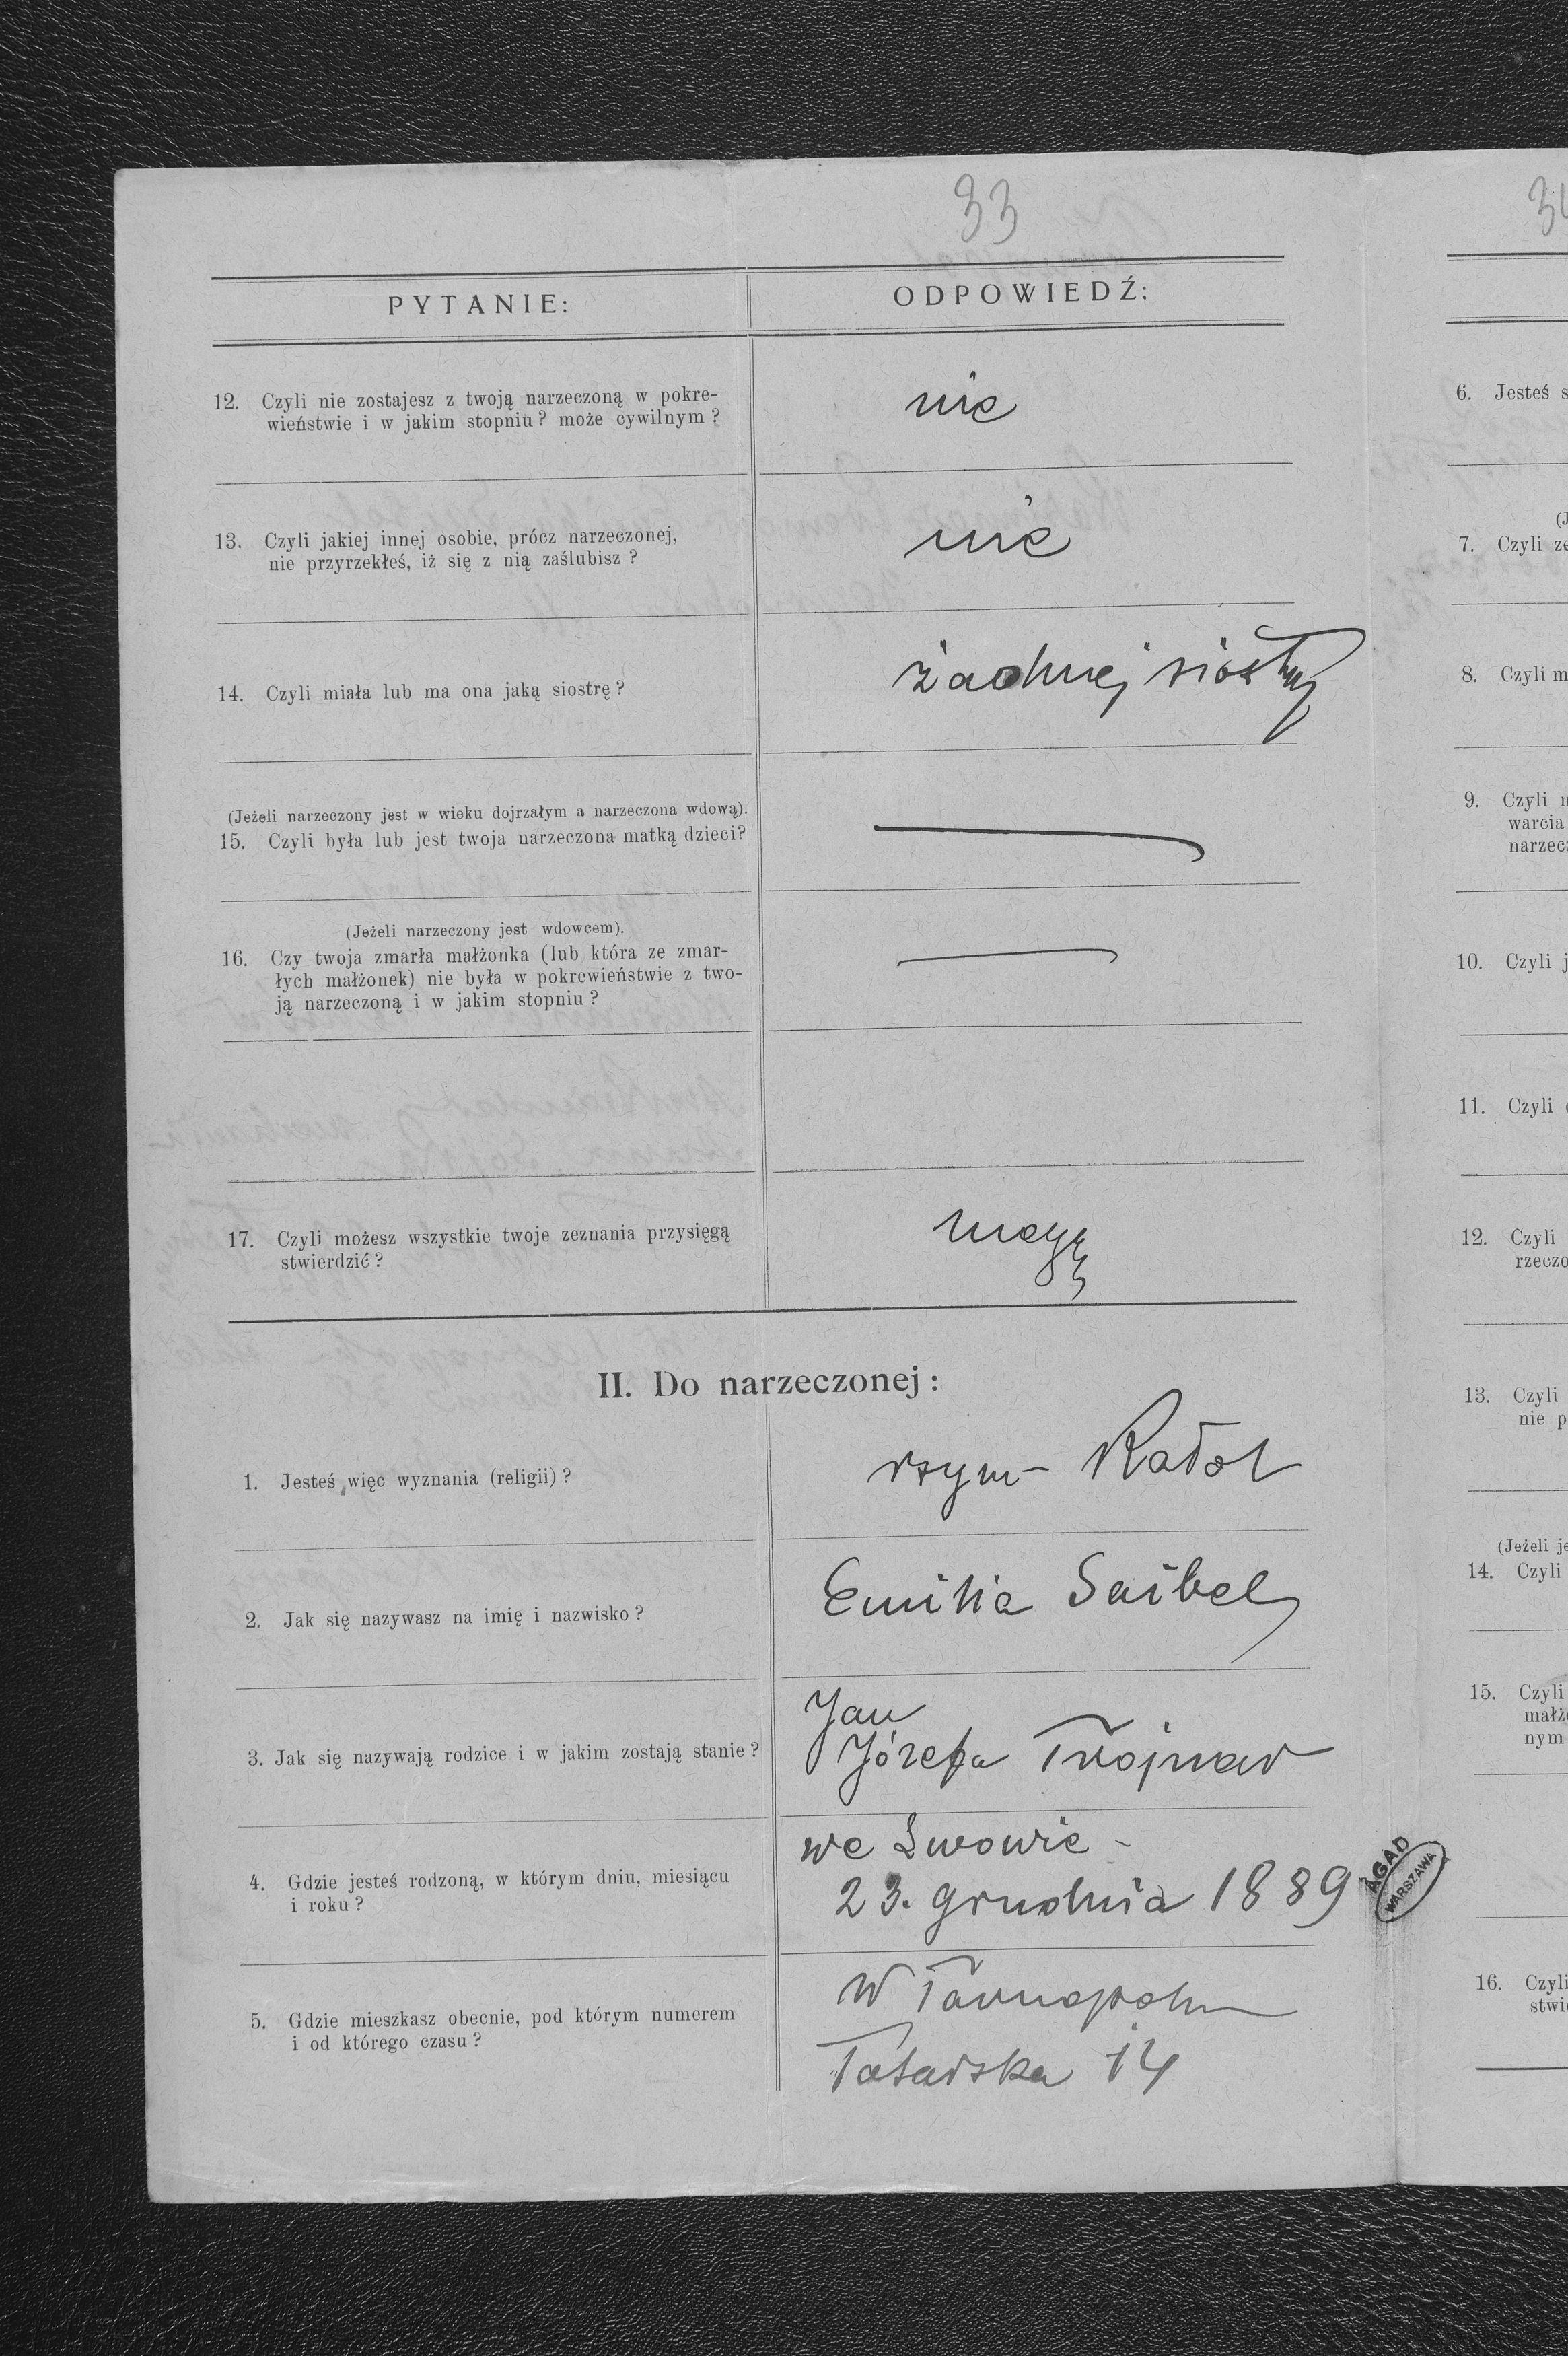 33
PYTANIE:
ODPOWIEDŹ:
12. Czyli nie zostajesz z twoją narzeczoną w pokre-
wieństwie i w jakim stopniu? może cywilnym?
nie
13. Czyli jakiej innej osobie, prócz narzeczonej,
nie przyrzekłeś, iż się z nią zaślubisz?
nie
14. Czyli miała lub ma ona jaką siostrę?
żadnej siostry
(Jeżeli narzeczony jest w wieku dojrzałym a narzeczona wdową).
15. Czyli była lub jest twoja narzeczona matką dzieci?
(Jeżeli narzeczony jest wdowcem).
16. Czy twoja zmarła małżonka (lub która ze zmar-
łych małżonek) nie była w pokrewieństwie z two-
ją narzeczoną i w jakim stopniu?
17. Czyli możesz wszystkie twoje zeznania przysięgą
stwierdzić?
mogę
II. Do narzeczonej:
1. Jesteś więc wyznania (religii)?
rzym- Katol
2. Jak się nazywasz na imię i nazwisko?
Emilia Saibel
3. Jak się nazywają rodzice i w jakim zostają stanie?
Jan
Józefa Trojnar
4. Gdzie jesteś rodzoną, w którym dniu, miesiącu
i roku?
we Lwowie -
23. grudnia 1889
5. Gdzie mieszkasz obecnie, pod którym numerem
i od którego czasu?
w Tarnopolu
Tatarska 14
AGAD
WARSZAWA
6. Jesteś
7. Czyli
8. Czyli
9. Czyli
warcia
10. Czyli
11. Czyli
12. Czyli
13. Czyli
nie
(Jeżeli
14. Czyli
15. Czyli
nym
16. Czyli